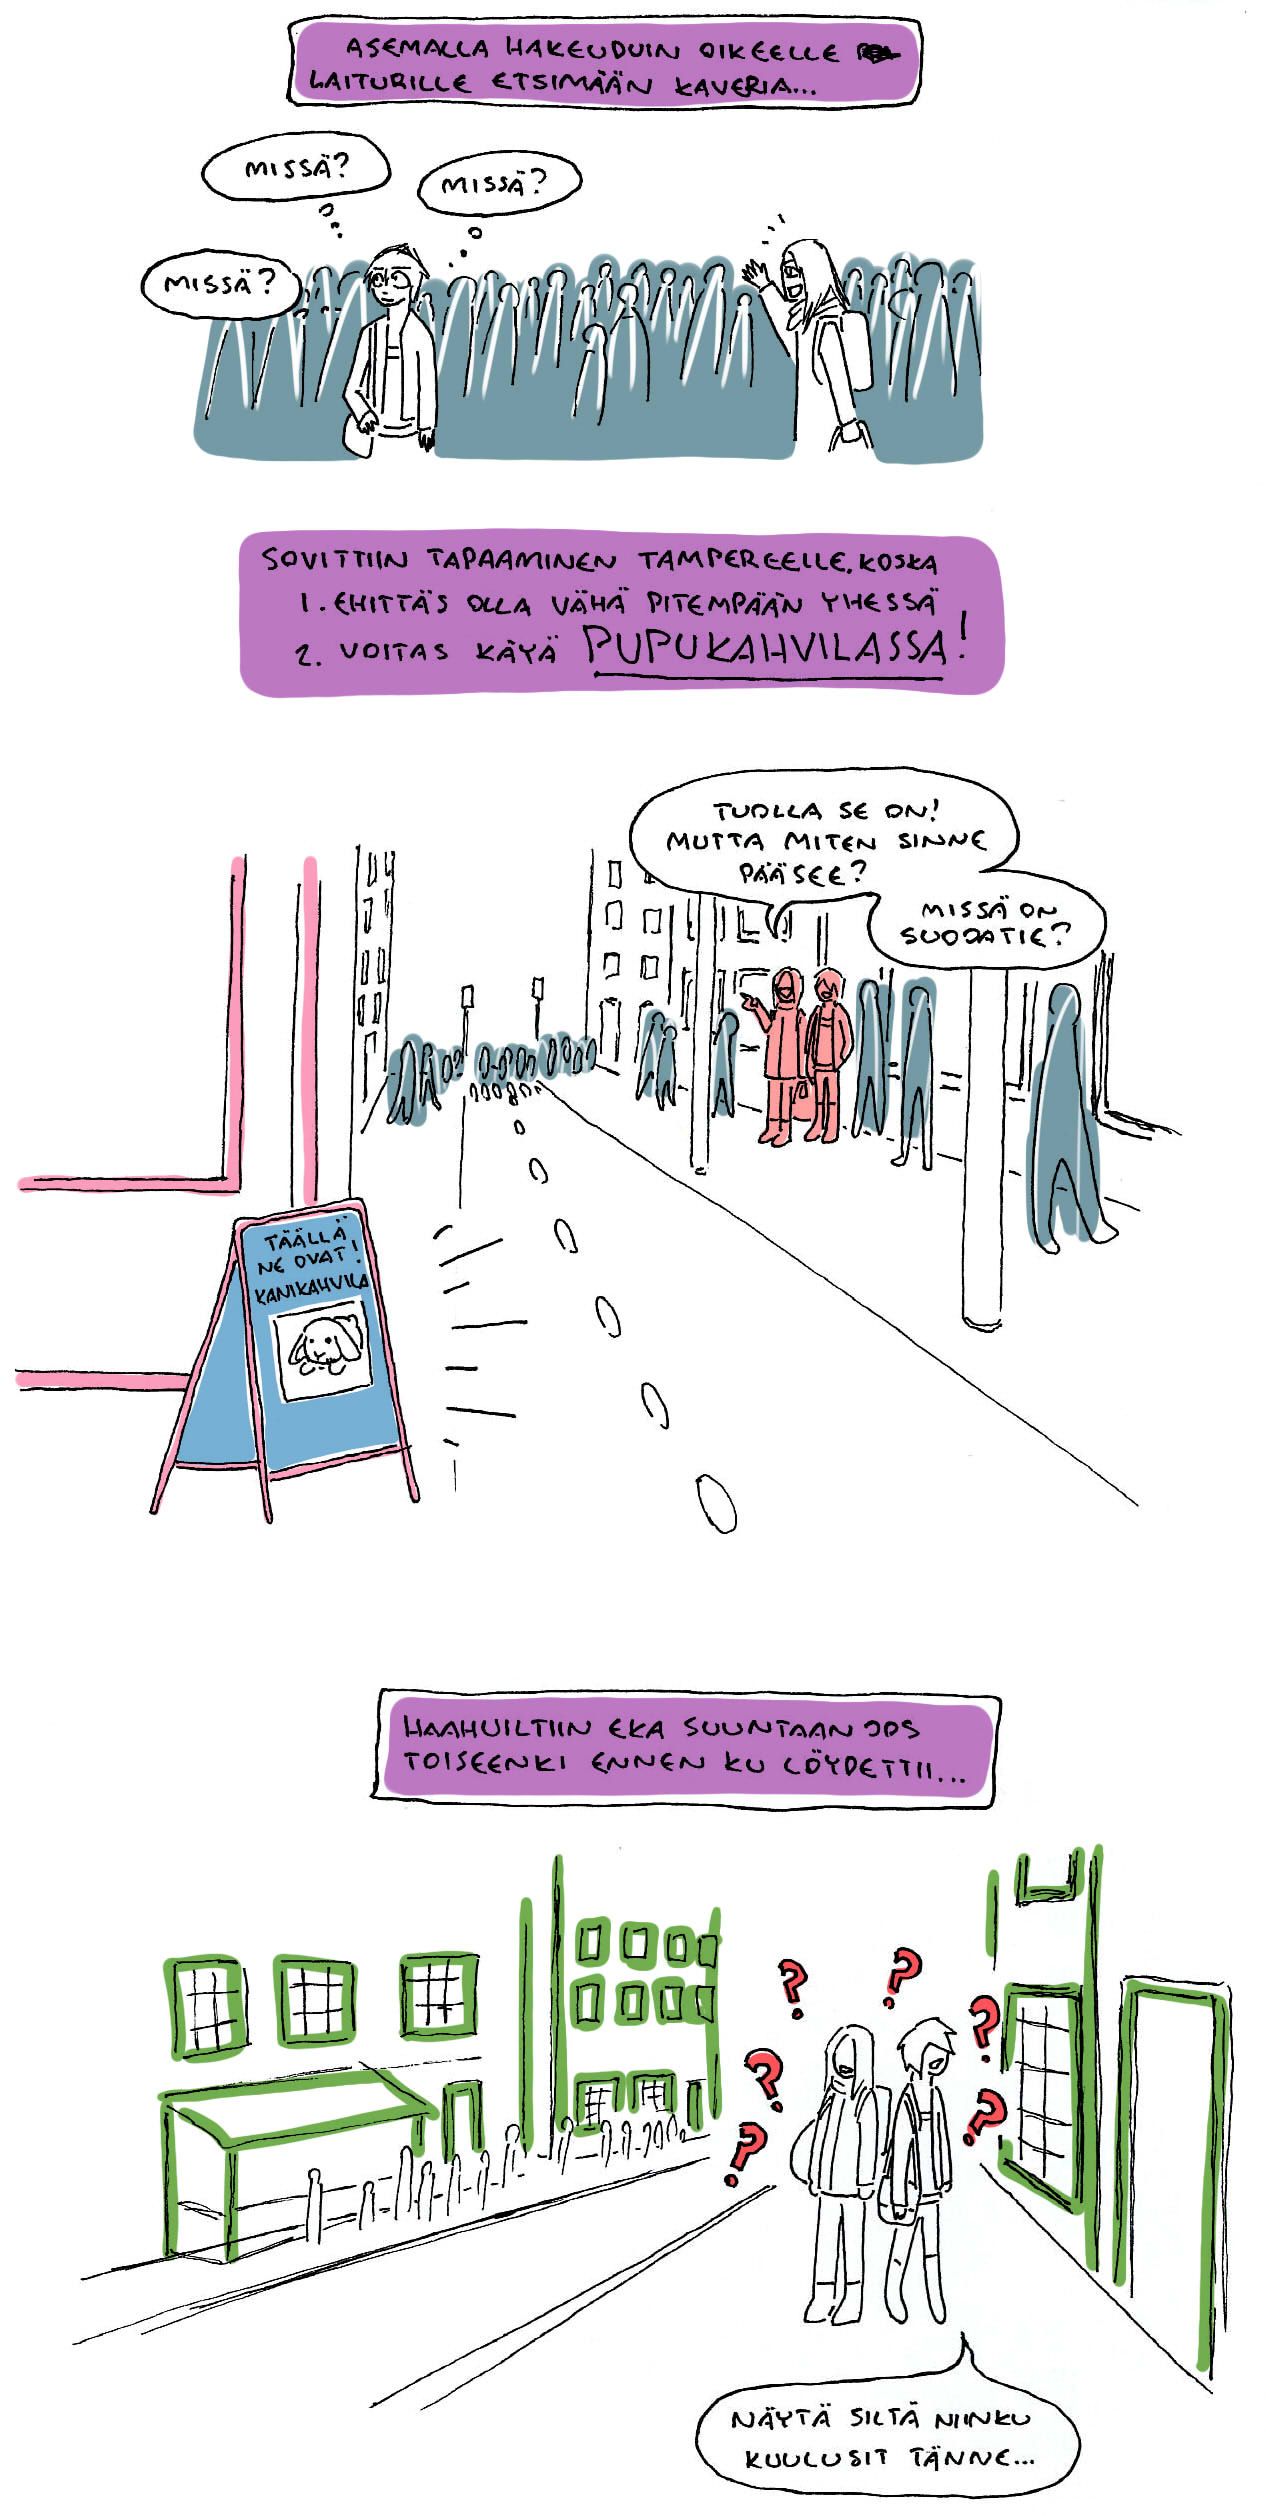 ASEMALLA HAKEUDUIN OIKEELLE
LAITURILLE ETSIMÄÄN KAVERIA...
MISSÄ?
MISSÄ?
MISSÄ?
SOVITTIIN TAPAAMINEN TAMPEREELLE, KOSKA
1. EHITTÄS OLLA VÄHÄ PITEMPÄÄN YHESSÄ
2. VOITAS KÄYÄ PUPUKAHVILASSA!
TUOLLA SE ON!
MUTTA MITEN SINNE
PÄÄSEE?
MISSÄ ON
SUOJATIE?
TÄÄLLÄ
NE OVAT!
KANIKAHVILA
HAAHUILTIIN EKA SUUNTAAN JOS
TOISEENKI ENNEN KU LÖYDETTII...
?
?
?
?
?
?
NÄYTÄ SILTÄ NIINKU
KUULUSIT TÄNNE...